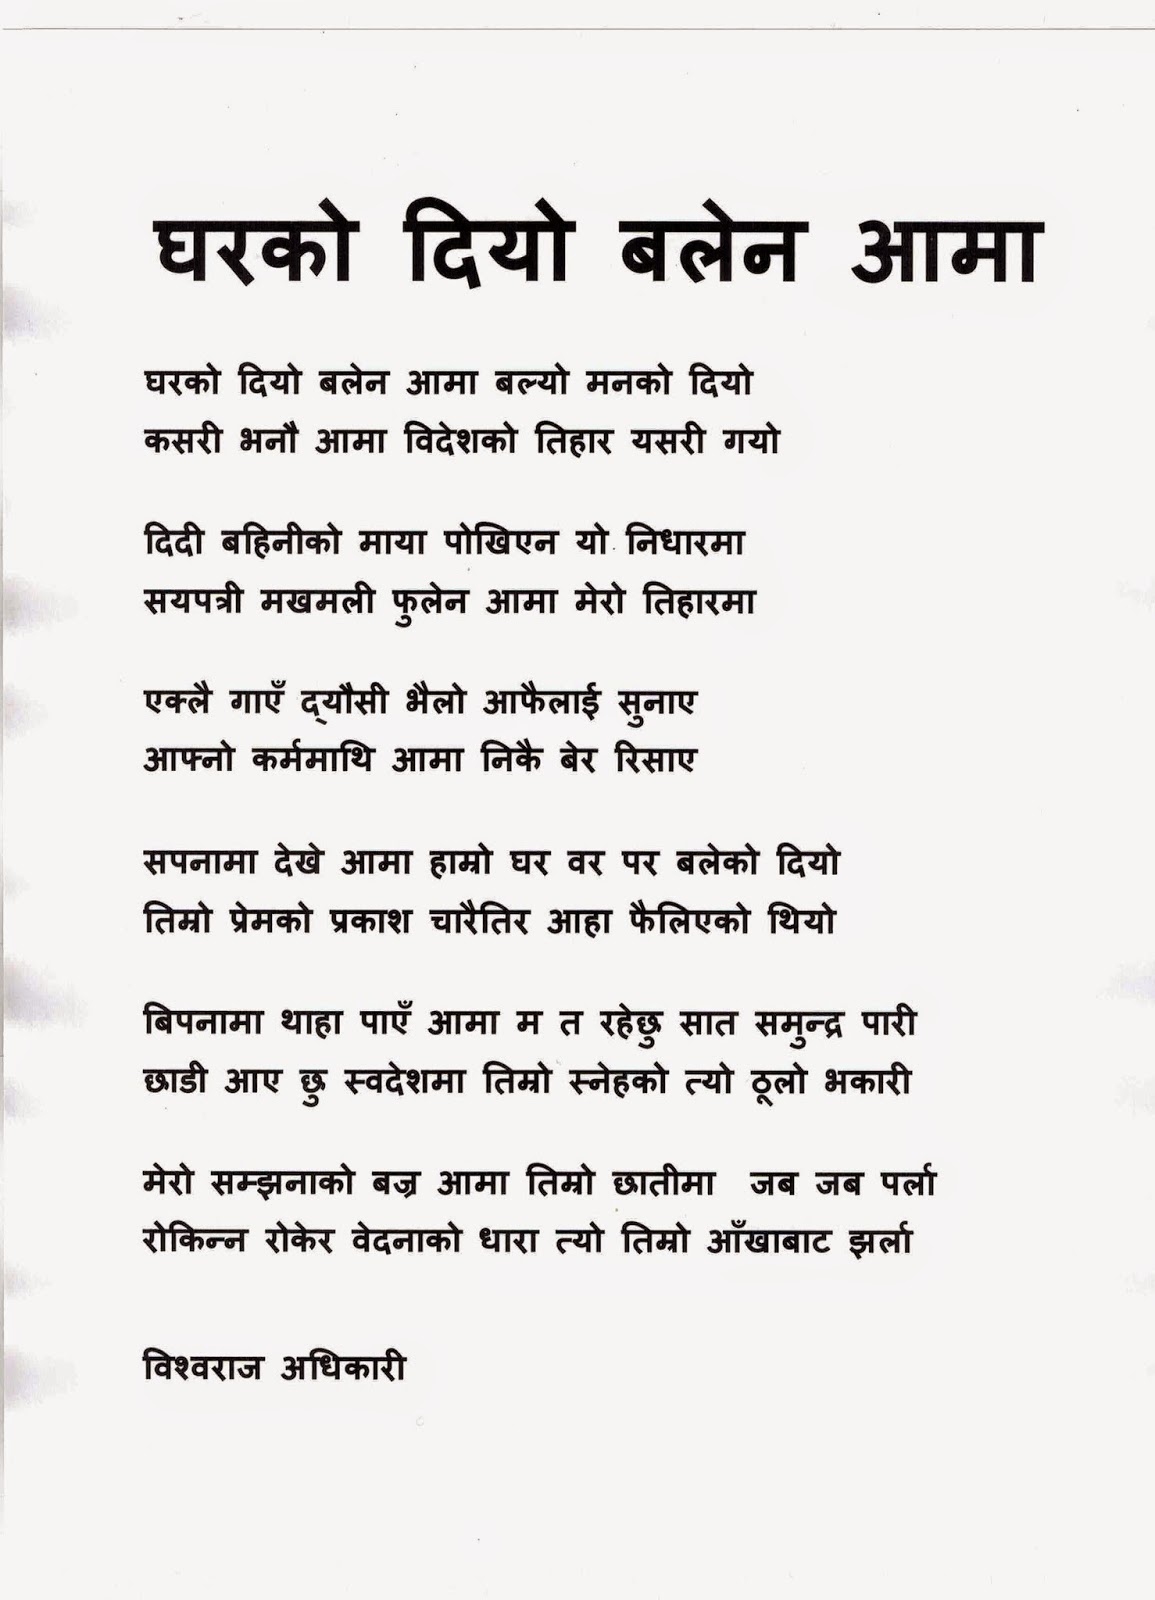 घरको दियो बलेन आमा
घरको दियो बलेन आमा बल्यो मनको दियो
कसरी भनौ आमा विदेशको तिहार यसरी गयो
दिदी बहिनीको माया पोखिएन यो निधारमा
सयपत्री मखमली फुलेन आमा मेरो तिहारमा
एक्लै गाएँ द्‌यौसी भैलो आफैलाई सुनाए
आफ्नो कर्ममाथि आमा निकै बेर रिसाए
सपनामा देखे आमा हाम्रो घर वर पर बलेको दियो
तिम्रो प्रेमको प्रकाश चारैतिर आहा फैलिएको थियो
बिपनामा थाहा पाएँ आमा म त रहेछु सात समुन्द्र पारी
छाडी आए छु स्वदेशमा तिम्रो स्नेहको त्यो ठूलो भकारी
मेरो सम्झनाको बज्र आमा तिम्रो छातीमा जब जब पर्ला
रोकिन्न रोकेर वेदनाको धारा त्यो तिम्रो आँखाबाट झर्ला
विश्वराज अधिकारी